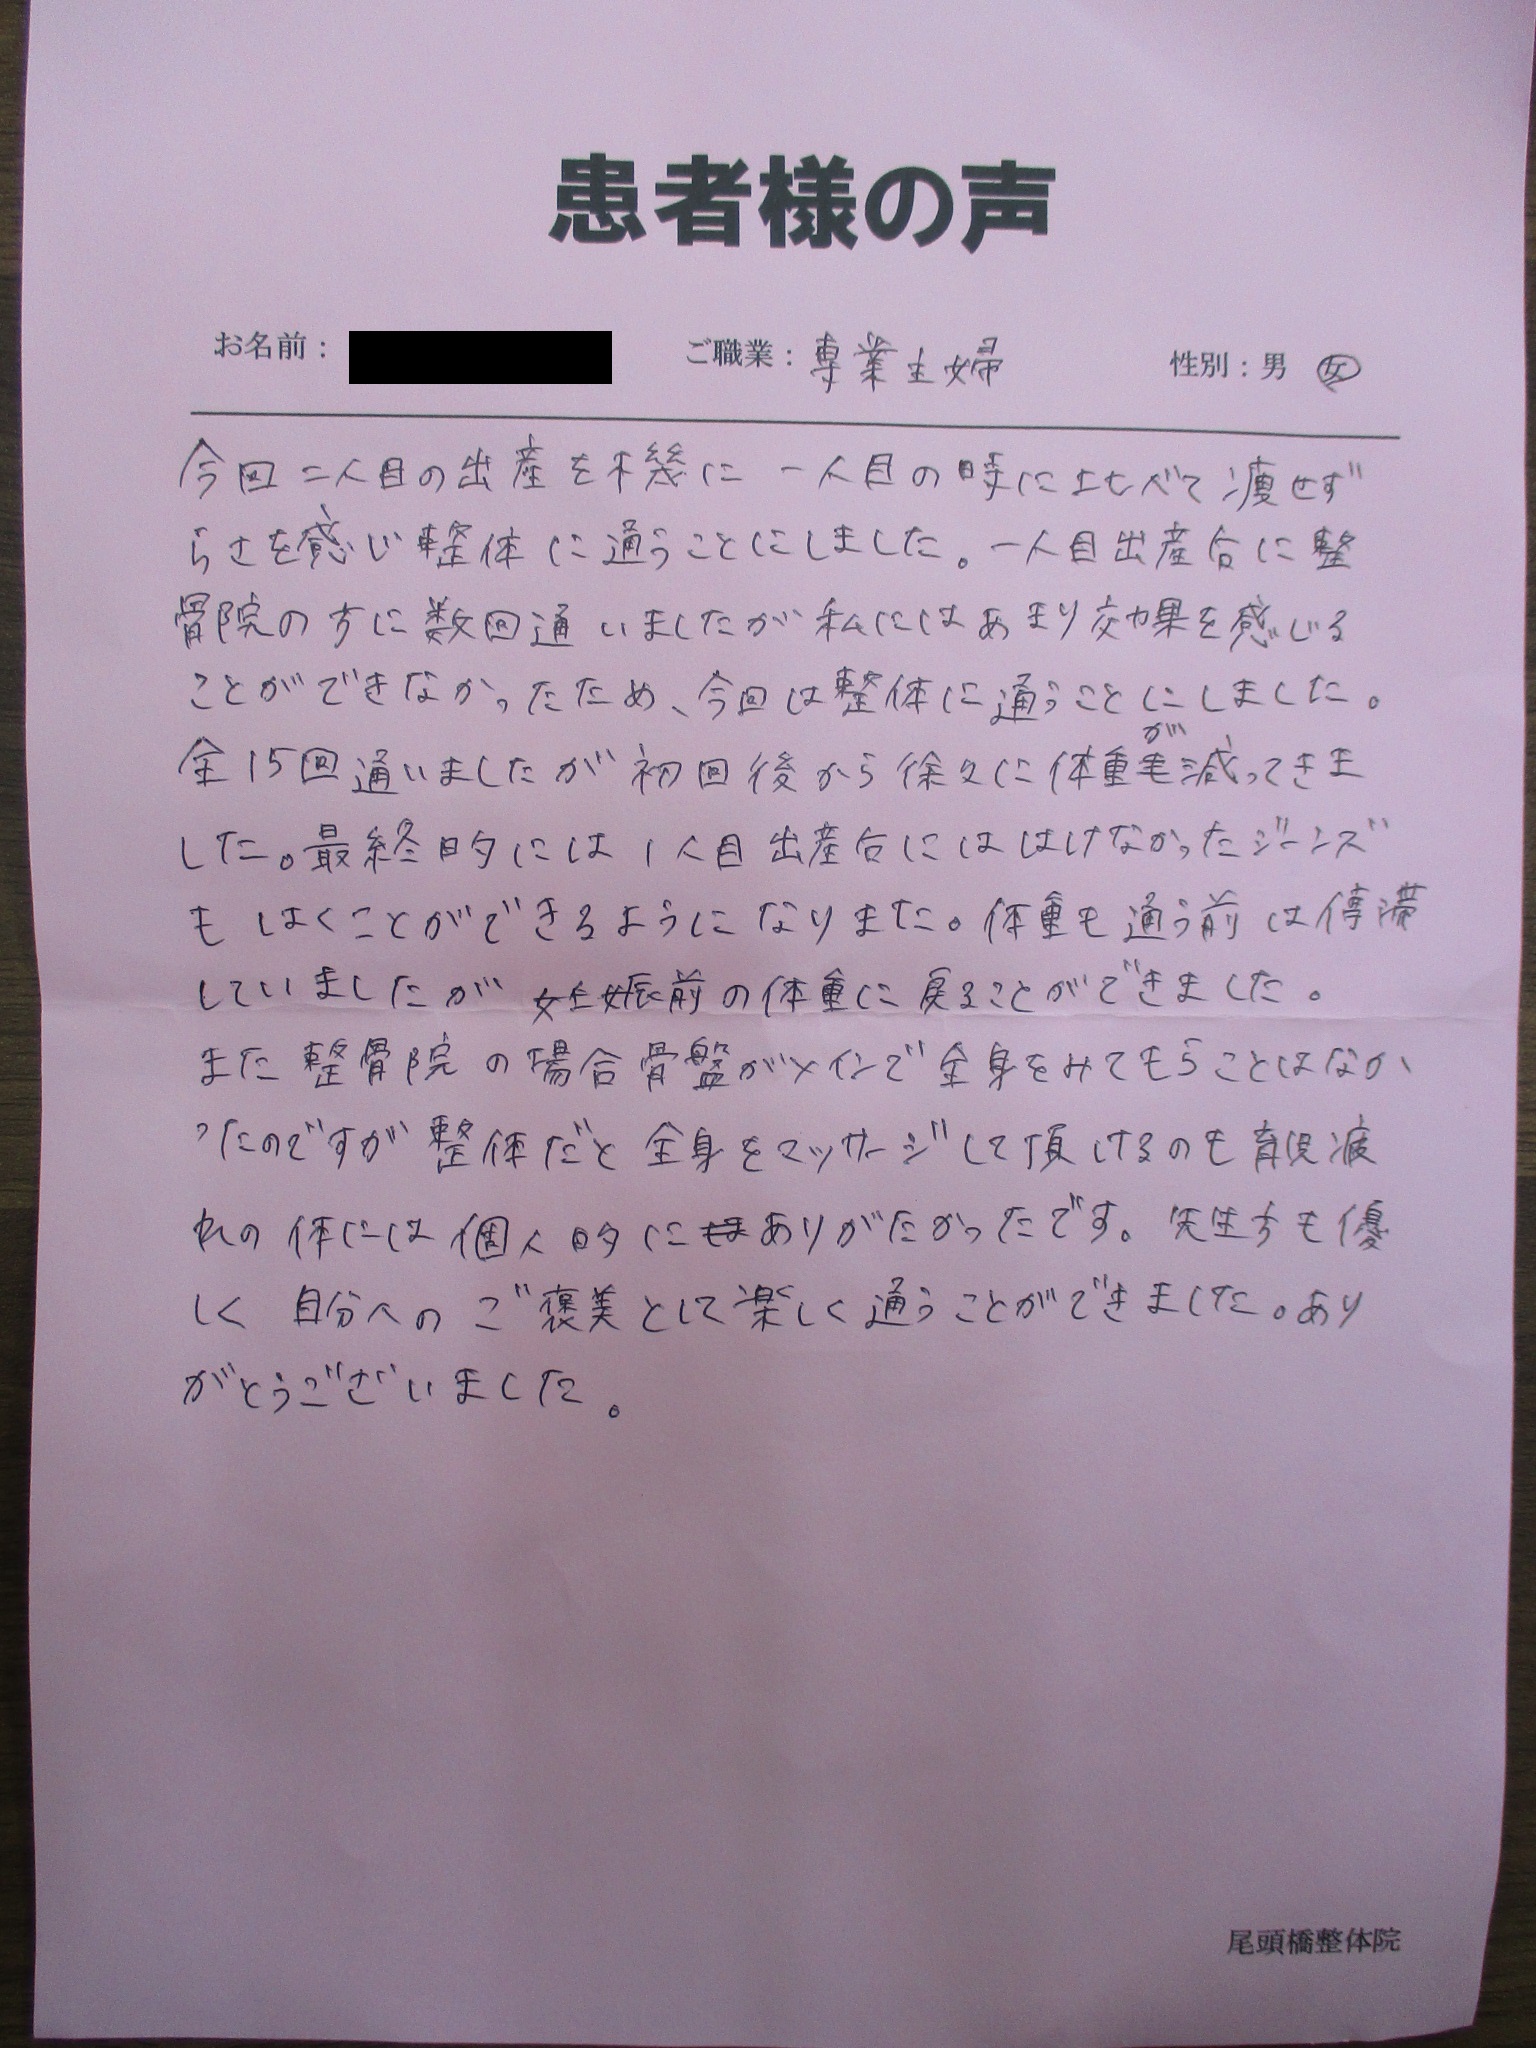 患者様の声
お名前: ご職業: 専業主婦 性別: 男 女
今回二人目の出産を機に 一人目の時に比べて痩せず
らさを感じ整体に通うことにしました。一人目出産后に整
骨院の方に数回通いましたが私にはあまり効果を感じる
ことができなかったため、今回は整体に通うことにしました。
全15回通いましたが初回後から徐々に体重が減ってきま
した。最終的には1人目出産后にははけなかったジーンズ
も はくことができるようになりました。体重も通う前は停滞
していましたが 妊娠前の体重に戻ることができました。
また整骨院の場合骨盤がメインで全身をみてもらことはなか
ったのですが整体だと全身をマッサージして頂けるのも育児疲
れの体には個人的にありがたかったです。先生方も優
しく 自分へのご褒美として楽しく通うことができました。あり
がとうございました。
尾頭橋整体院